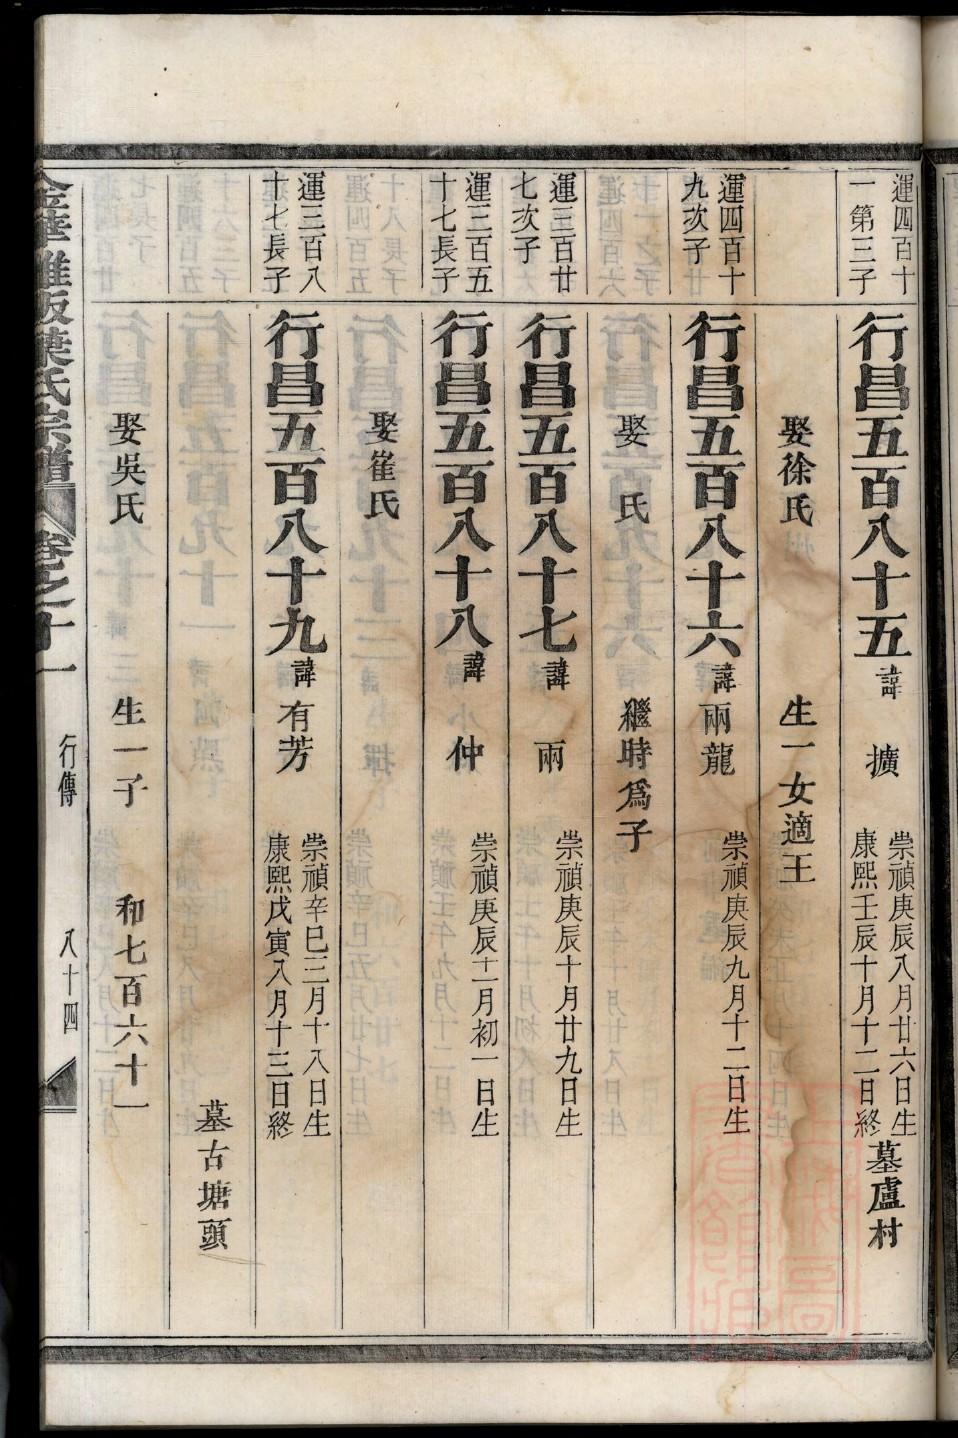 運四百十
一第三子
行昌五百八十五諱 擴
崇禎庚辰八月廿六日生
康熙壬辰十月十二日終
墓盧村
娶徐氏 生一女適王
運四百十
九次子
行昌五百八十六諱雨龍
崇禎庚辰九月十二日生
娶 氏 繼時為子
運三百廿
七次子
行昌五百八十七諱 雨
崇禎庚辰十月廿九日生
運三百五
十七長子
行昌五百八十八諱 仲
崇禎庚辰十二月初一日生
娶崔氏
運三百八
十七長子
行昌五百八十九諱有芳
崇禎辛巳三月十八日生
康熙戊寅八月十三日終
墓古塘頭
娶吳氏 生一子 和七百六十一
金華雅畈葉氏宗譜 卷之十一 行傳 八十四